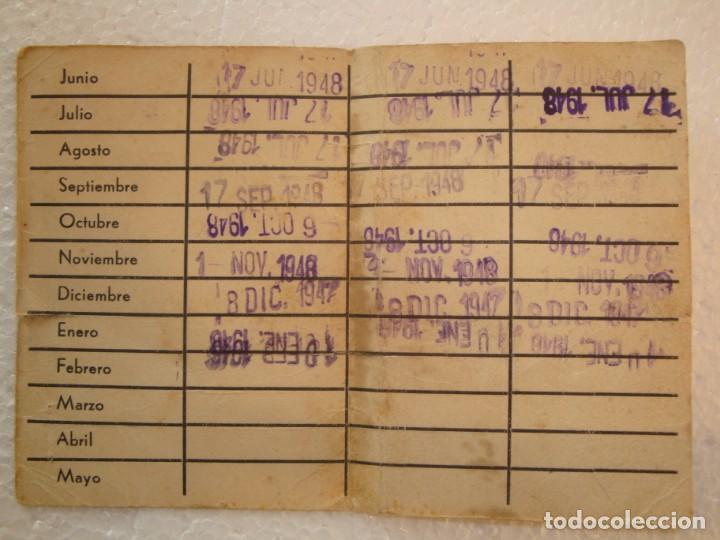 Junio 17 JUN. 1948 17 JUN 1948 17 JUN 1948
Julio 17 JUL. 1948 7 JUL. 1948 17 JUL. 1948
Agosto 17 JUL. 1948 17 JUL. 1948
Septiembre 17 SEP. 1948 7 SEP. 1948 17 SEP.
Octubre 6 OCT. 1948 6 OCT. 1948 6 OCT. 1948
Noviembre 1 - NOV. 1948 - NOV. 1948 1 NOV.
Diciembre 8 DIC. 1947 8 DIC. 1947 8 DIC.
Enero ENE. 1948 ENE. ENE. 1948
Febrero
Marzo
Abril
Mayo
todocoleccion.net